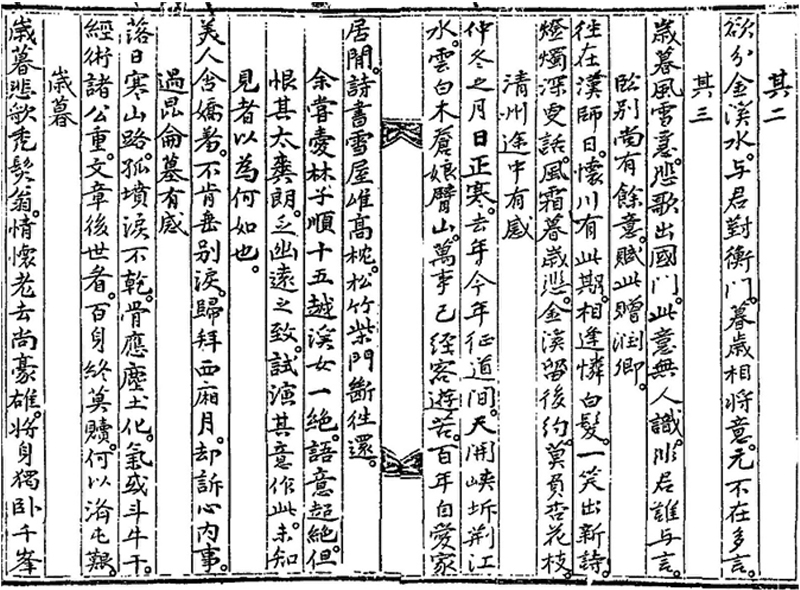 其二
欲分金溪水。与君對衡門。暮歲相將意。元不在多言。
其三
歲暮風雪急。悲歌出國門。此意無人識。非君誰与言。
臨别尚有餘意。賦此贈润卿。
往在漢師日。懷川有此期。相逢憐白髮。一笑出新詩。
燈燭深更話。風霜暮歲悲。金溪留後約。莫負杏花枝。
清州途中有感
仲冬之月日正寒。去年今年征道间。天開峽坼荆江
水。雲白木蒼娘臂山。萬事已經客遊苦。百年自愛家
居閒。詩書雪屋雄高枕。松竹柴門斷徃還。
余嘗愛林子順十五越溪女一絶。語意超絶。但
恨其太爽朗。乏幽遠之致。試演其意作此。未知
見者以為何如也。
美人含嬌羞。不肯垂别淚。歸拜西廂月。却訴心内事。
過昆侖墓有感
落日寒山路。孤墳淚不乾。骨應塵土化。氣或斗牛干。
經術諸公重。文章後世看。百身終莫贖。何以濟屯艱。
歲暮
歲暮悲歌禿鬓翁。情懷老去尚豪雄。將身獨卧千峯